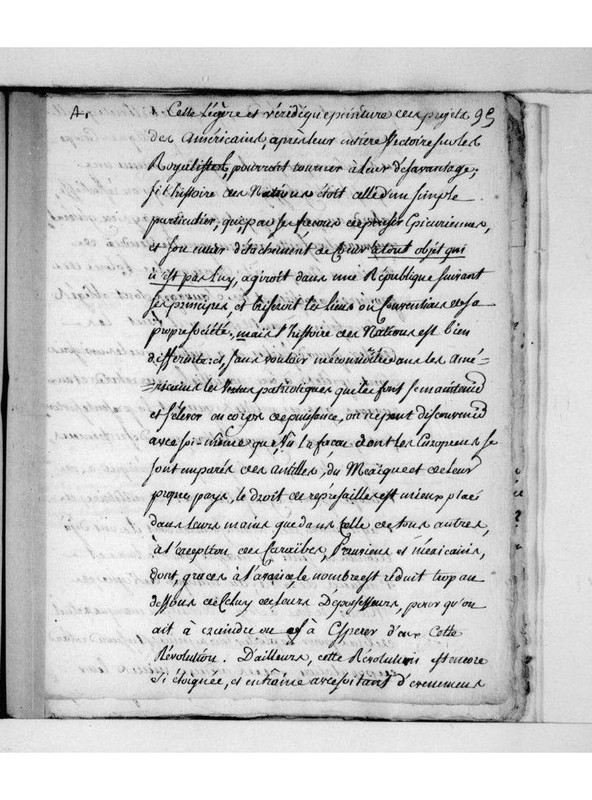 A. Cette Légère et véridique peinture des projets 95
des Américains, après leur entière Victoire sur les
Royalistes, pourroit tourner à leur désavantage,
si l'histoire des Nations étoit celle d'un simple
particulier, qui, par ses façons de penser Epicuriennes,
et son entier détachement de Cœur à tout objet qui
n'est pas Luy, agiroit dans une République suivant
ses principes, et briseroit les liens ou Conventions de sa
propre société, mais l'histoire des Nations est bien
différente; et, sans vouloir méconnoître dans les Amé=
=ricains les Vertus patriotiques qui les font se maintenir
et s'élever au corps de puissance, on ne peut disconvenir
avec soi-même que, Vu la façon dont les Européens se
sont emparés des Antilles, du Mexique et de leur
propre pays, le droit de représailles est mieux placé
dans leurs mains que dans Celle de tous autres,
à l'exception des Caraïbes, Péruviens et Méxicains,
dont, graces à l'avarice, le nombre est réduit trop au
dessous de Celuy de leurs Dépossesseurs, pour qu'on
ait à craindre ou à Espérer d'eux Cette
Révolution. D'ailleurs, cette Révolution est encore
si éloignée, et entraine avec soi tant d'évenemens